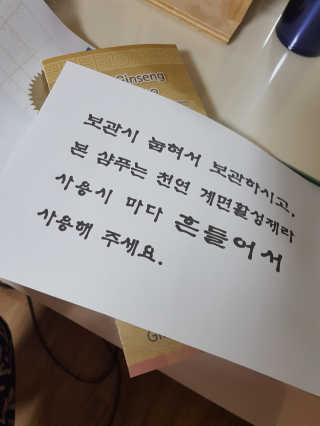 Ginseng
보관시 눕혀서 보관하시고,
본 샴푸는 천연 계면활성제라
사용시 마다 흔들어서
사용해 주세요.